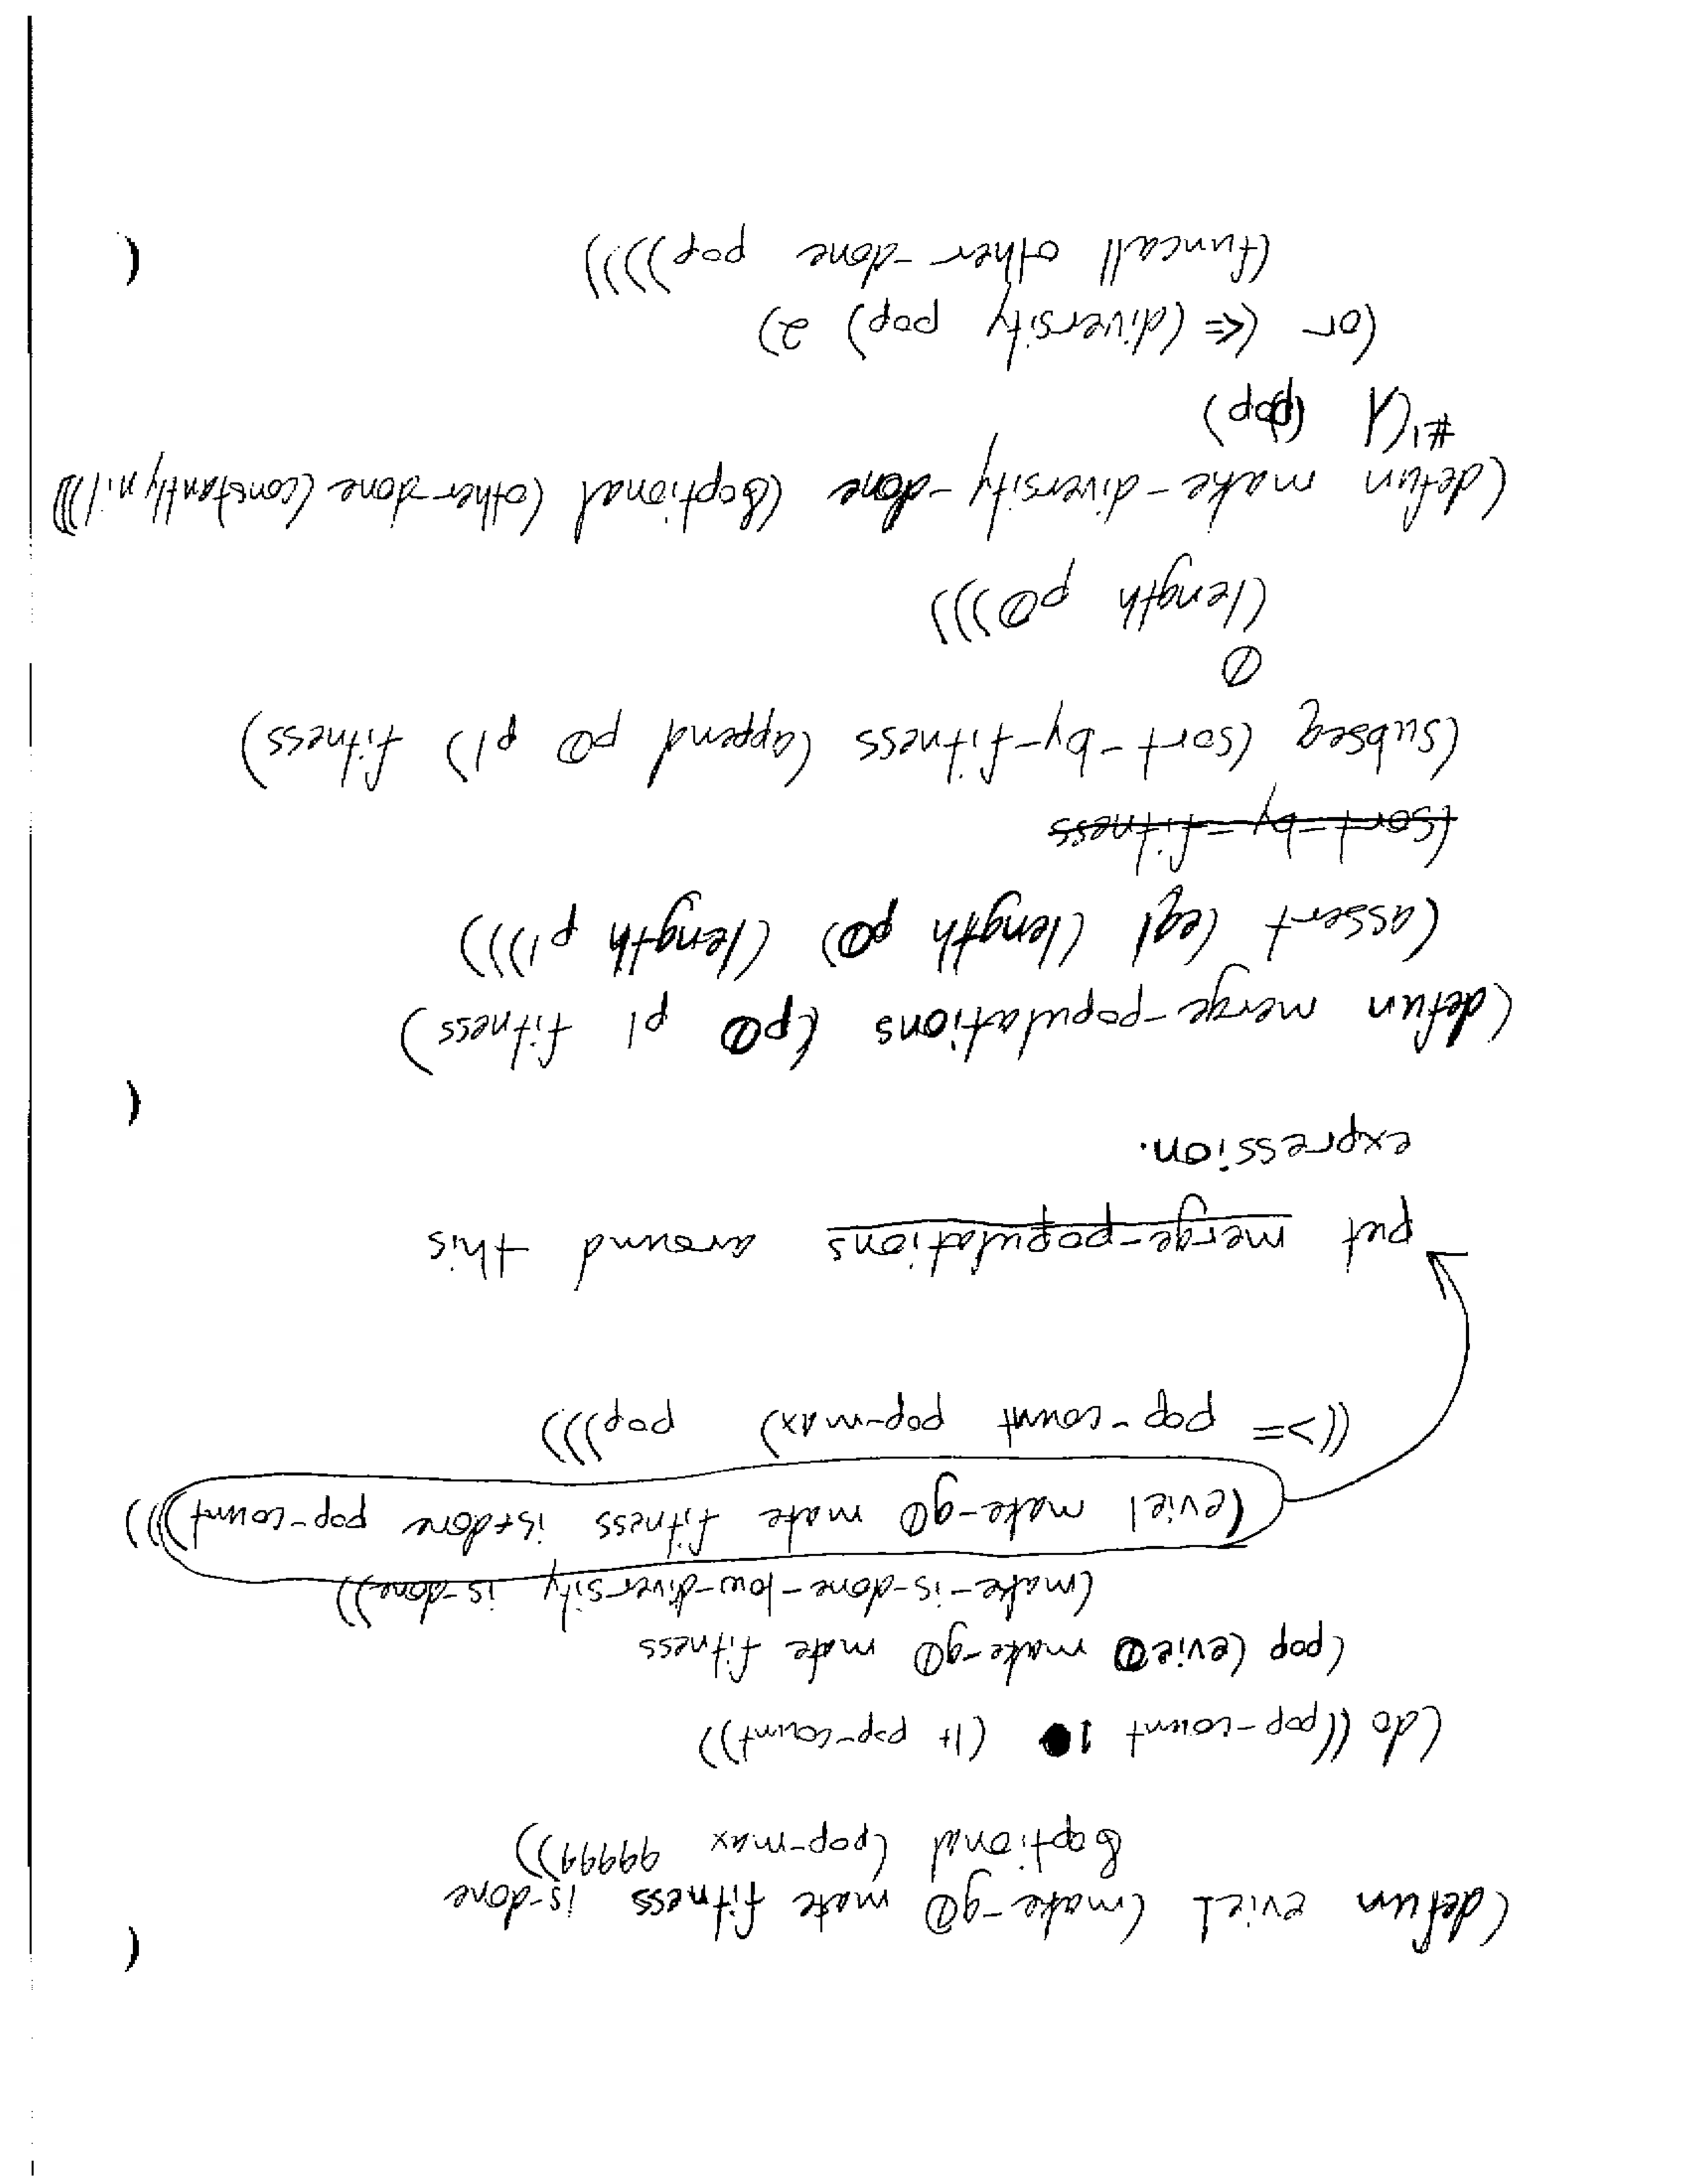 (defun evie1 (make-g0 mate fitness is-done
&optional (pop-max 99999))
(do ((pop-count 1 (1+ pop-count))
(pop (evie0 make-g0 mate fitness
(make-is-done-low-diversity is-done))
(evie1 make-g0 mate fitness is-done pop-count)))
((>= pop-count pop-max) pop)))
put merge-populations around this
expression.
(defun merge-populations (p0 p1 fitness)
(assert (eql (length p0) (length p1)))
(sort-by-fitness
(subseq (sort-by-fitness (append p0 p1) fitness)
0
(length p0)))
(defun make-diversity-done (&optional (other-done (constantly nil)))
#'(λ (pop)
(or (<= (diversity pop) 2)
(funcall other-done pop))))